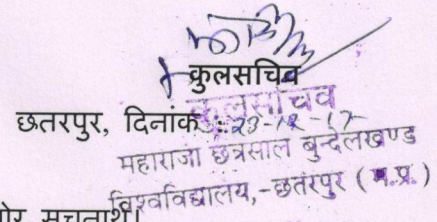 कुलसचिव
कुलसचिव
छतरपुर, दिनांक :: 29-12-17
महाराजा छत्रसाल बुन्देलखण्ड
विश्वविद्यालय,-छतरपुर (म.प्र.)
सूचनार्थ।